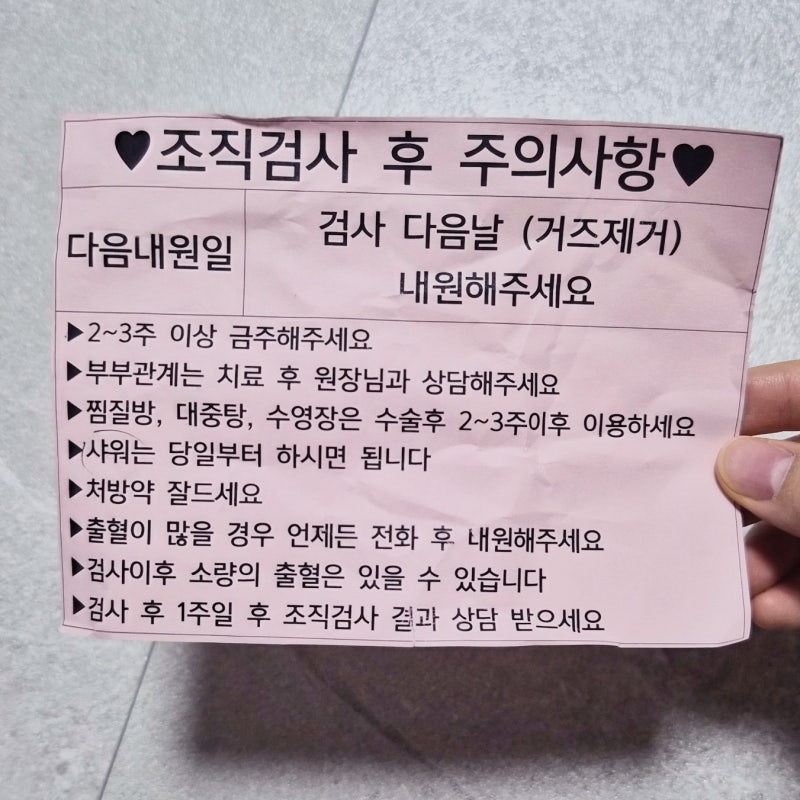 ♥조직검사 후 주의사항♥
다음내원일
검사 다음날 (거즈제거)
내원해주세요
▶2~3주 이상 금주해주세요
▶부부관계는 치료 후 원장님과 상담해주세요
▶찜질방, 대중탕, 수영장은 수술후 2~3주이후 이용하세요
▶샤워는 당일부터 하시면 됩니다
▶처방약 잘드세요
▶출혈이 많을 경우 언제든 전화 후 내원해주세요
▶검사이후 소량의 출혈은 있을 수 있습니다
▶검사 후 1주일 후 조직검사 결과 상담 받으세요